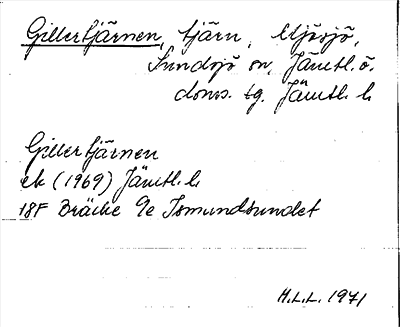 Gillertjärnen, tjärn, Mjösjö,
Sundsjö sn, Jämtl. ö.
doms. tg. Jämtl. l.
Gillertjärnen
ek (1969) Jämtl. l.
18F Bräcke 9e Ismundsundet
H.L.L. 1971